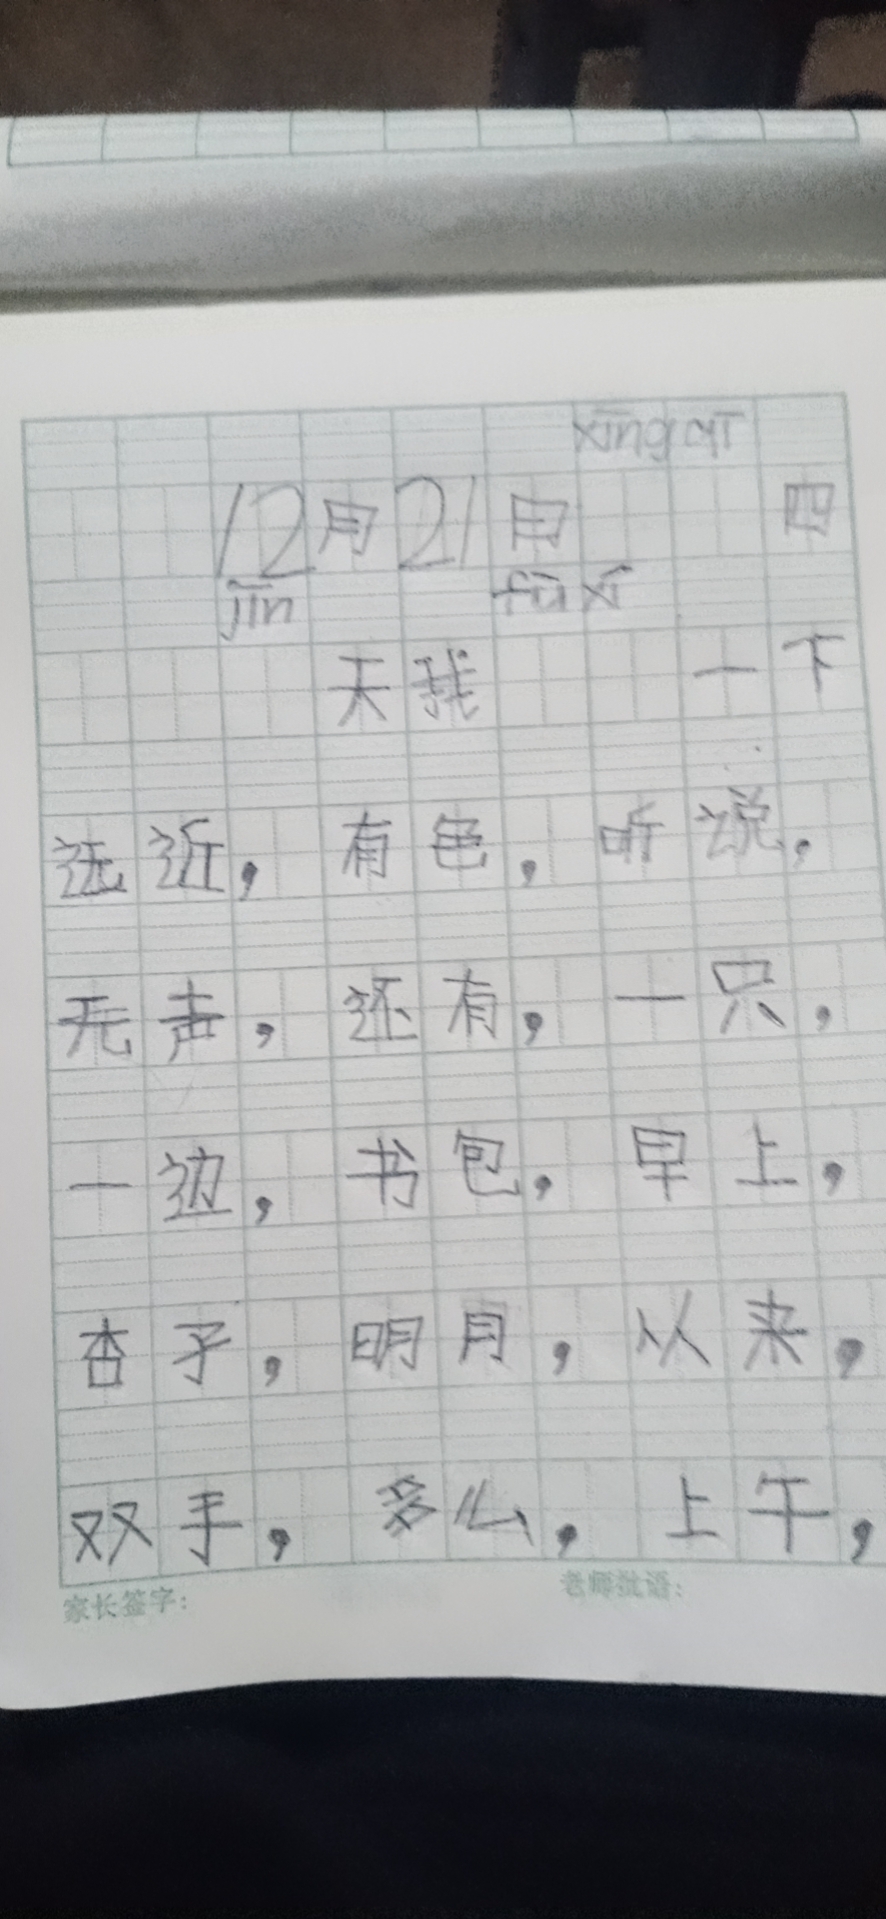 xīng qī
12月21日 四
jīn fù xí
天我 一下
远近，有色，听说，
无声，还有，一只，
一边，书包，早上，
杏子，明月，以来，
双手，多么，上午，
家长签字： 老师批语：